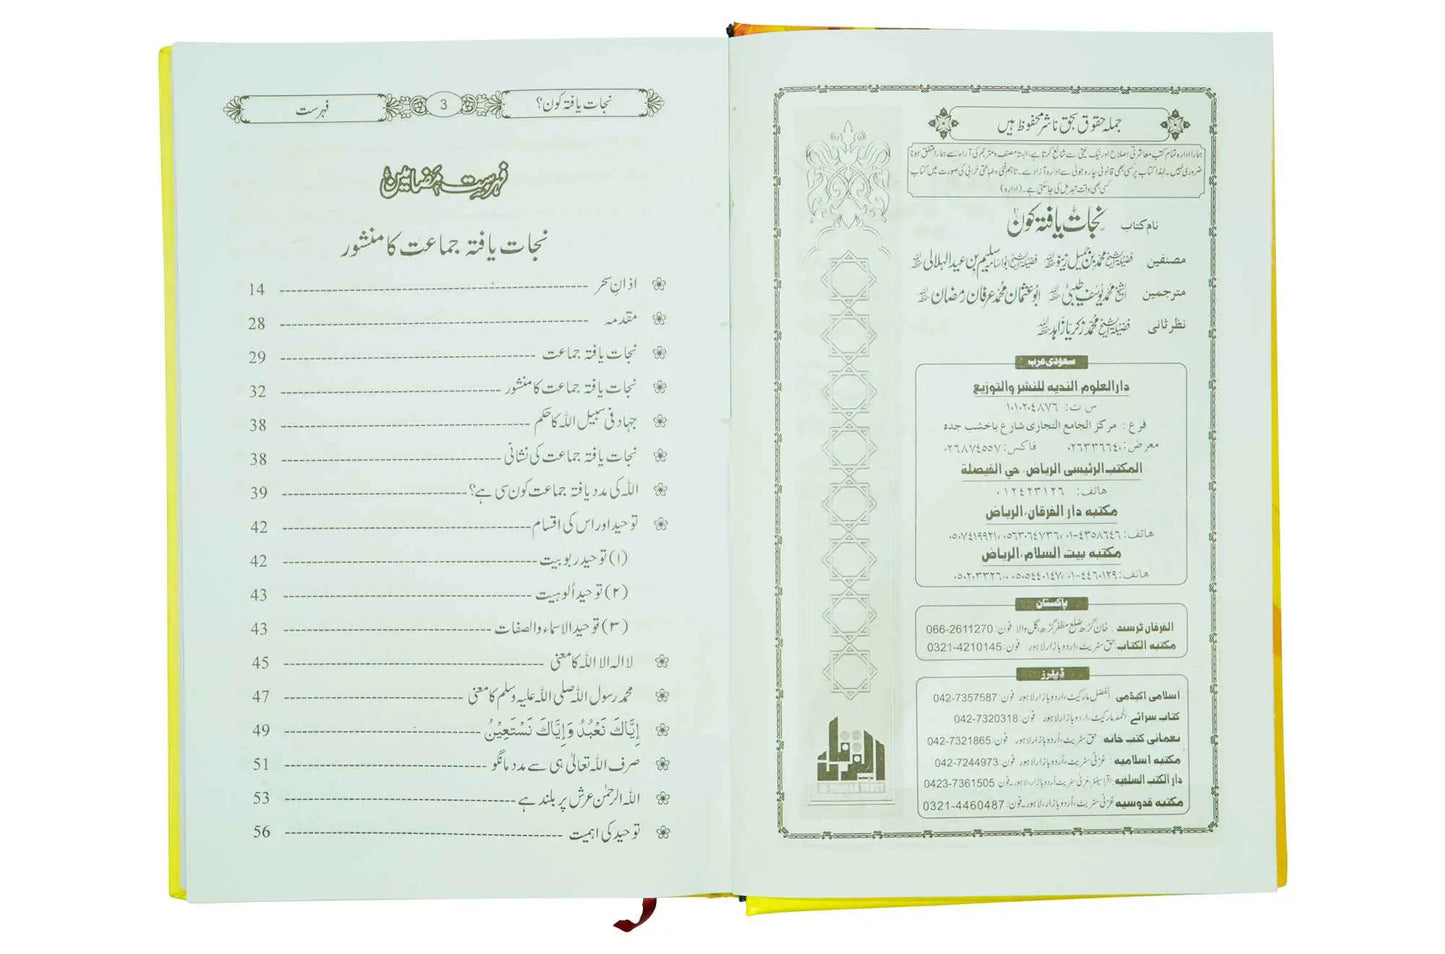 جملہ حقوق بحق ناشر محفوظ ہیں
ہمارا ادارہ تمام کتب معاشرتی اصلاح اور نیک نیتی سے شائع کرتا ہے، البتہ مصنف و مترجم کی آراء سے ہمارا متفق ہونا
ضروری نہیں۔ لہٰذا کتاب پر کسی بھی قانونی چارہ جوئی سے ادارہ آزاد ہے۔ تاہم فنی و طباعتی خرابی کی صورت میں کتاب
کسی بھی وقت تبدیل کی جاسکتی ہے۔ (ادارہ)
نام کتاب نجات یافتہ کون
مصنفین فضیلۃ الشیخ محمد بن جمیل زینو فضیلۃ الشیخ ابو اسامہ سلیم بن عید الہلالی
مترجمین الشیخ محمد یوسف طیبی ابو عثمان محمد عرفان رمضان
نظر ثانی فضیلۃ الشیخ محمد زکریا زاہد
سعودی عرب
دار العلوم النديه للنشر والتوزيع
س ت: ١٠١٠٢٠٤٨٧٦
فرع: مركز الجامع التجاري شارع باخشب جده
معرض: ٠٢٦٣٣٦٦٤٠ فاكس: ٠٢٦٨٧٤٥٥٧
المكتب الرئيسى الرياض، حي الفيصلة
هاتف: ٠١٢٤٢٣١٢٦
مكتبه دار الفرقان، الرياض
هاتف: ٠١-٤٣٥٨٦٤٦، ٠٥٦٣٠٦٤٧٣٦، ٠٥٠٧٤١٩٩٢١
مكتبه بيت السلام، الرياض
هاتف: ٠١-٤٤٦٠١٢٩، ٠٥٠٥٤٤٠١٤٧، ٠٥٠٢٠٣٣٢٦
پاکستان
الفرقان ٹرسٹ خان گڑھ ضلع مظفر گڑھ، گل والا فون: 066-2611270
مکتبہ الکتاب، حق سٹریٹ، اردو بازار لاہور فون: 0321-4210145
ڈیلرز
اسلامی اکیڈمی، الفضل مارکیٹ، اردو بازار لاہور فون: 042-7357587
کتاب سرائے الحمد مارکیٹ، اردو بازار لاہور فون: 042-7320318
نعمانی کتب خانہ حق سٹریٹ، اردو بازار لاہور فون: 042-7321865
مکتبہ اسلامیہ: غزنی سٹریٹ، اردو بازار لاہور فون: 042-7244973
دار الکتب السلفیہ اقرا سنٹر غزنی سٹریٹ، اردو بازار، لاہور۔ فون: 0423-7361505
مکتبہ قدوسیہ غزنی سٹریٹ، اردو بازار، لاہور۔ فون: 0321-4460487
الفرقان
نجات یافتہ کون؟ 3 فہرست
فہرست مضامین
نجات یافتہ جماعت کا منشور
اذانِ سحر 14
مقدمہ 28
نجات یافتہ جماعت 29
نجات یافتہ جماعت کا منشور 32
جہاد فی سبیل اللہ کا حکم 38
نجات یافتہ جماعت کی نشانی 38
اللہ کی مدد یافتہ جماعت کون سی ہے؟ 39
توحید اور اس کی اقسام 42
(۱) توحید ربوبیت 42
(۲) توحید اُلوہیت 43
(۳) توحید الاسماء والصفات 43
لا الہ الا اللہ کا معنی 45
محمد رسول اللہ صلی اللہ علیہ وسلم کا معنی 47
إِيَّاكَ نَعْبُدُ وَإِيَّاكَ نَسْتَعِيْنُ 49
صرف اللہ تعالیٰ ہی سے مدد مانگو 51
اللہ الرحمٰن عرش پر بلند ہے 53
توحید کی اہمیت 56